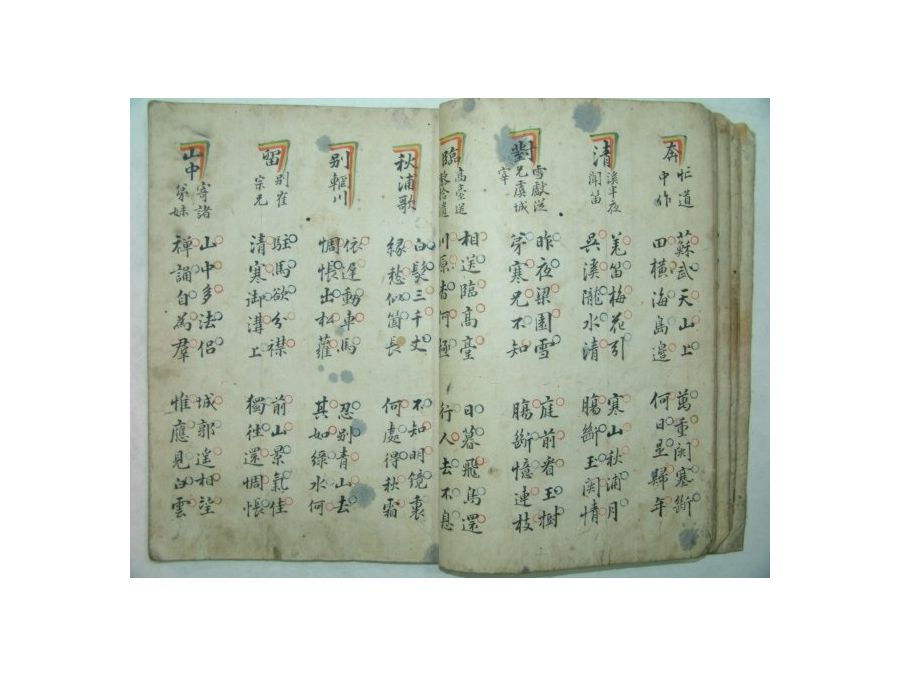 奔忙道中作
蘇武天山上 萬重関塞斷
田横海島邊 何日是歸年
清溪半夜聞笛
羌笛梅花引 寒山秋浦月
吳溪隴水清 膓斷玉関情
對雪獻從兄虞城宰
昨夜梁園雪 庭前看玉樹
弟寒兄不知 膓斷憶連枝
臨高臺送黎拾遺
相送臨高臺 日暮飛鳥還
川原杳何極 行人去不息
秋浦歌
白髮三千丈 不知明鏡裏
緣愁似箇長 何處得秋霜
别輞川
依遲動車馬 忍别青山去
惆悵出松蘿 其如綠水何
留别崔宗兄
駐馬欲分襟 前山景氣佳
清寒御溝上 獨往還惆悵
山中寄諸弟妹
山中多法侶 城郭遙相望
禅誦自為羣 惟應見白雲